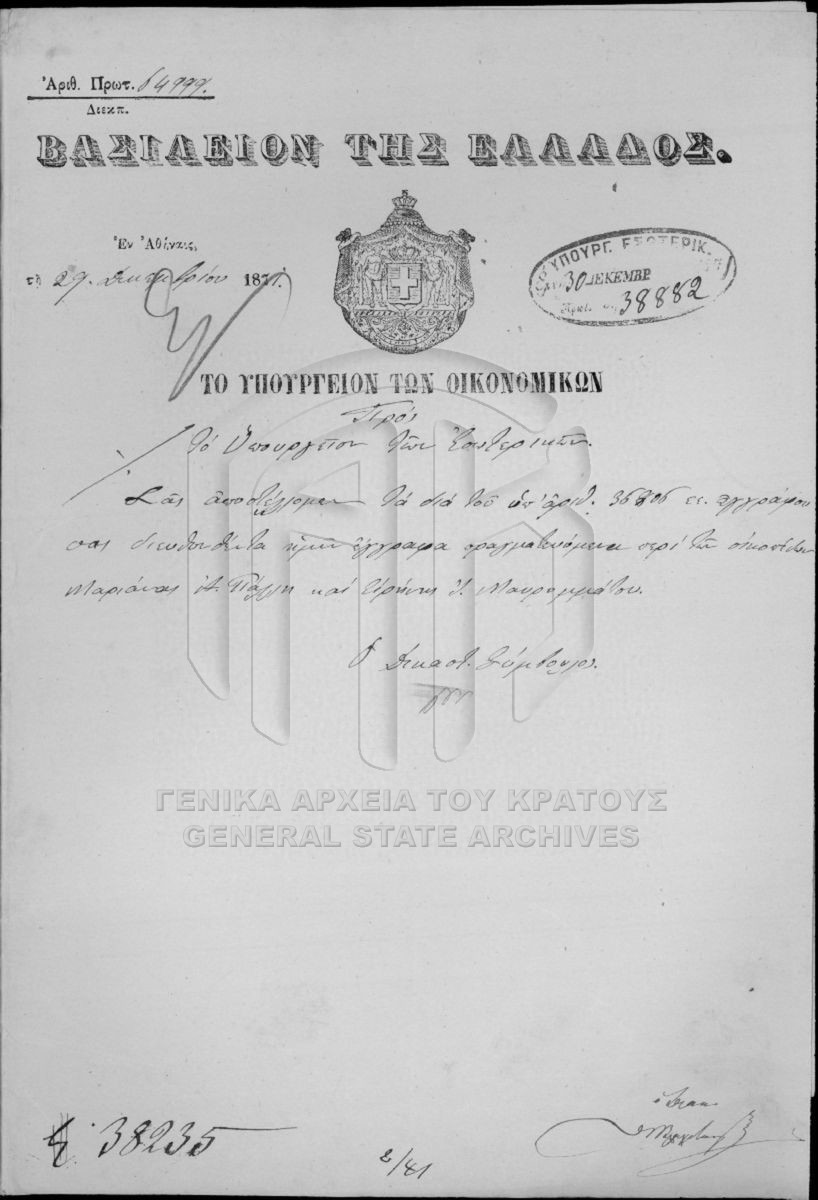 Ἀριθ. Πρωτ. 64999.
Διεκπ.
ΒΑΣΙΛΕΙΟΝ ΤΗΣ ΕΛΛΑΔΟΣ.
Ἐν Ἀθήναις,
τῇ 29. Δεκεμβρίου 187
ΥΠΟΥΡΓ. ΕΣΩΤΕΡΙΚ.
30 ΔΕΚΕΜΒΡ
38882
ΤΟ ΥΠΟΥΡΓΕΙΟΝ ΤΩΝ ΟΙΚΟΝΟΜΙΚΩΝ
Πρὸς
τὸ Ὑπουργεῖον τῶν Ἐσωτερικῶν.
Σᾶς ἀποστέλλομεν τὰ διὰ τοῦ ὑπ' ἀριθ. 36806 ἐγγράφου
σας διευθυνθέντα ἡμῖν ἔγγραφα πραγματευόμενα περὶ τῶν οἰκοπέδων
Μαριάνας Α. Πάλλη καὶ Εἰρήνης Ι. Μαυρομμάτου.
Ὁ Δικαστ. Σύμβουλος.
ΓΕΝΙΚΑ ΑΡΧΕΙΑ ΤΟΥ ΚΡΑΤΟΥΣ
GENERAL STATE ARCHIVES
38235
2/81